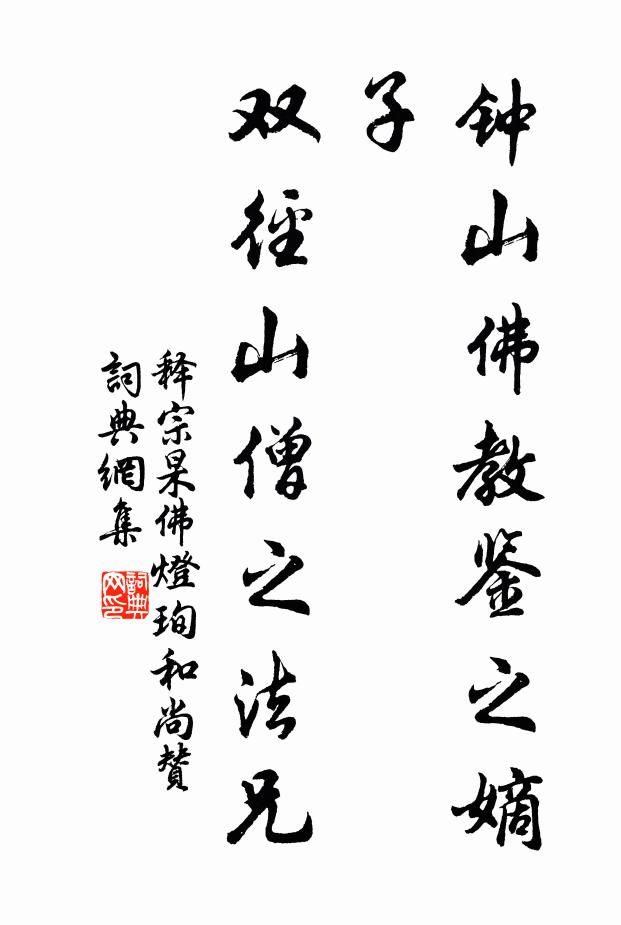 钟山佛教鉴之嫡
子
双径山僧之法兄
释宗杲佛燈珣和尚赞
詞典網集
詞典
网印